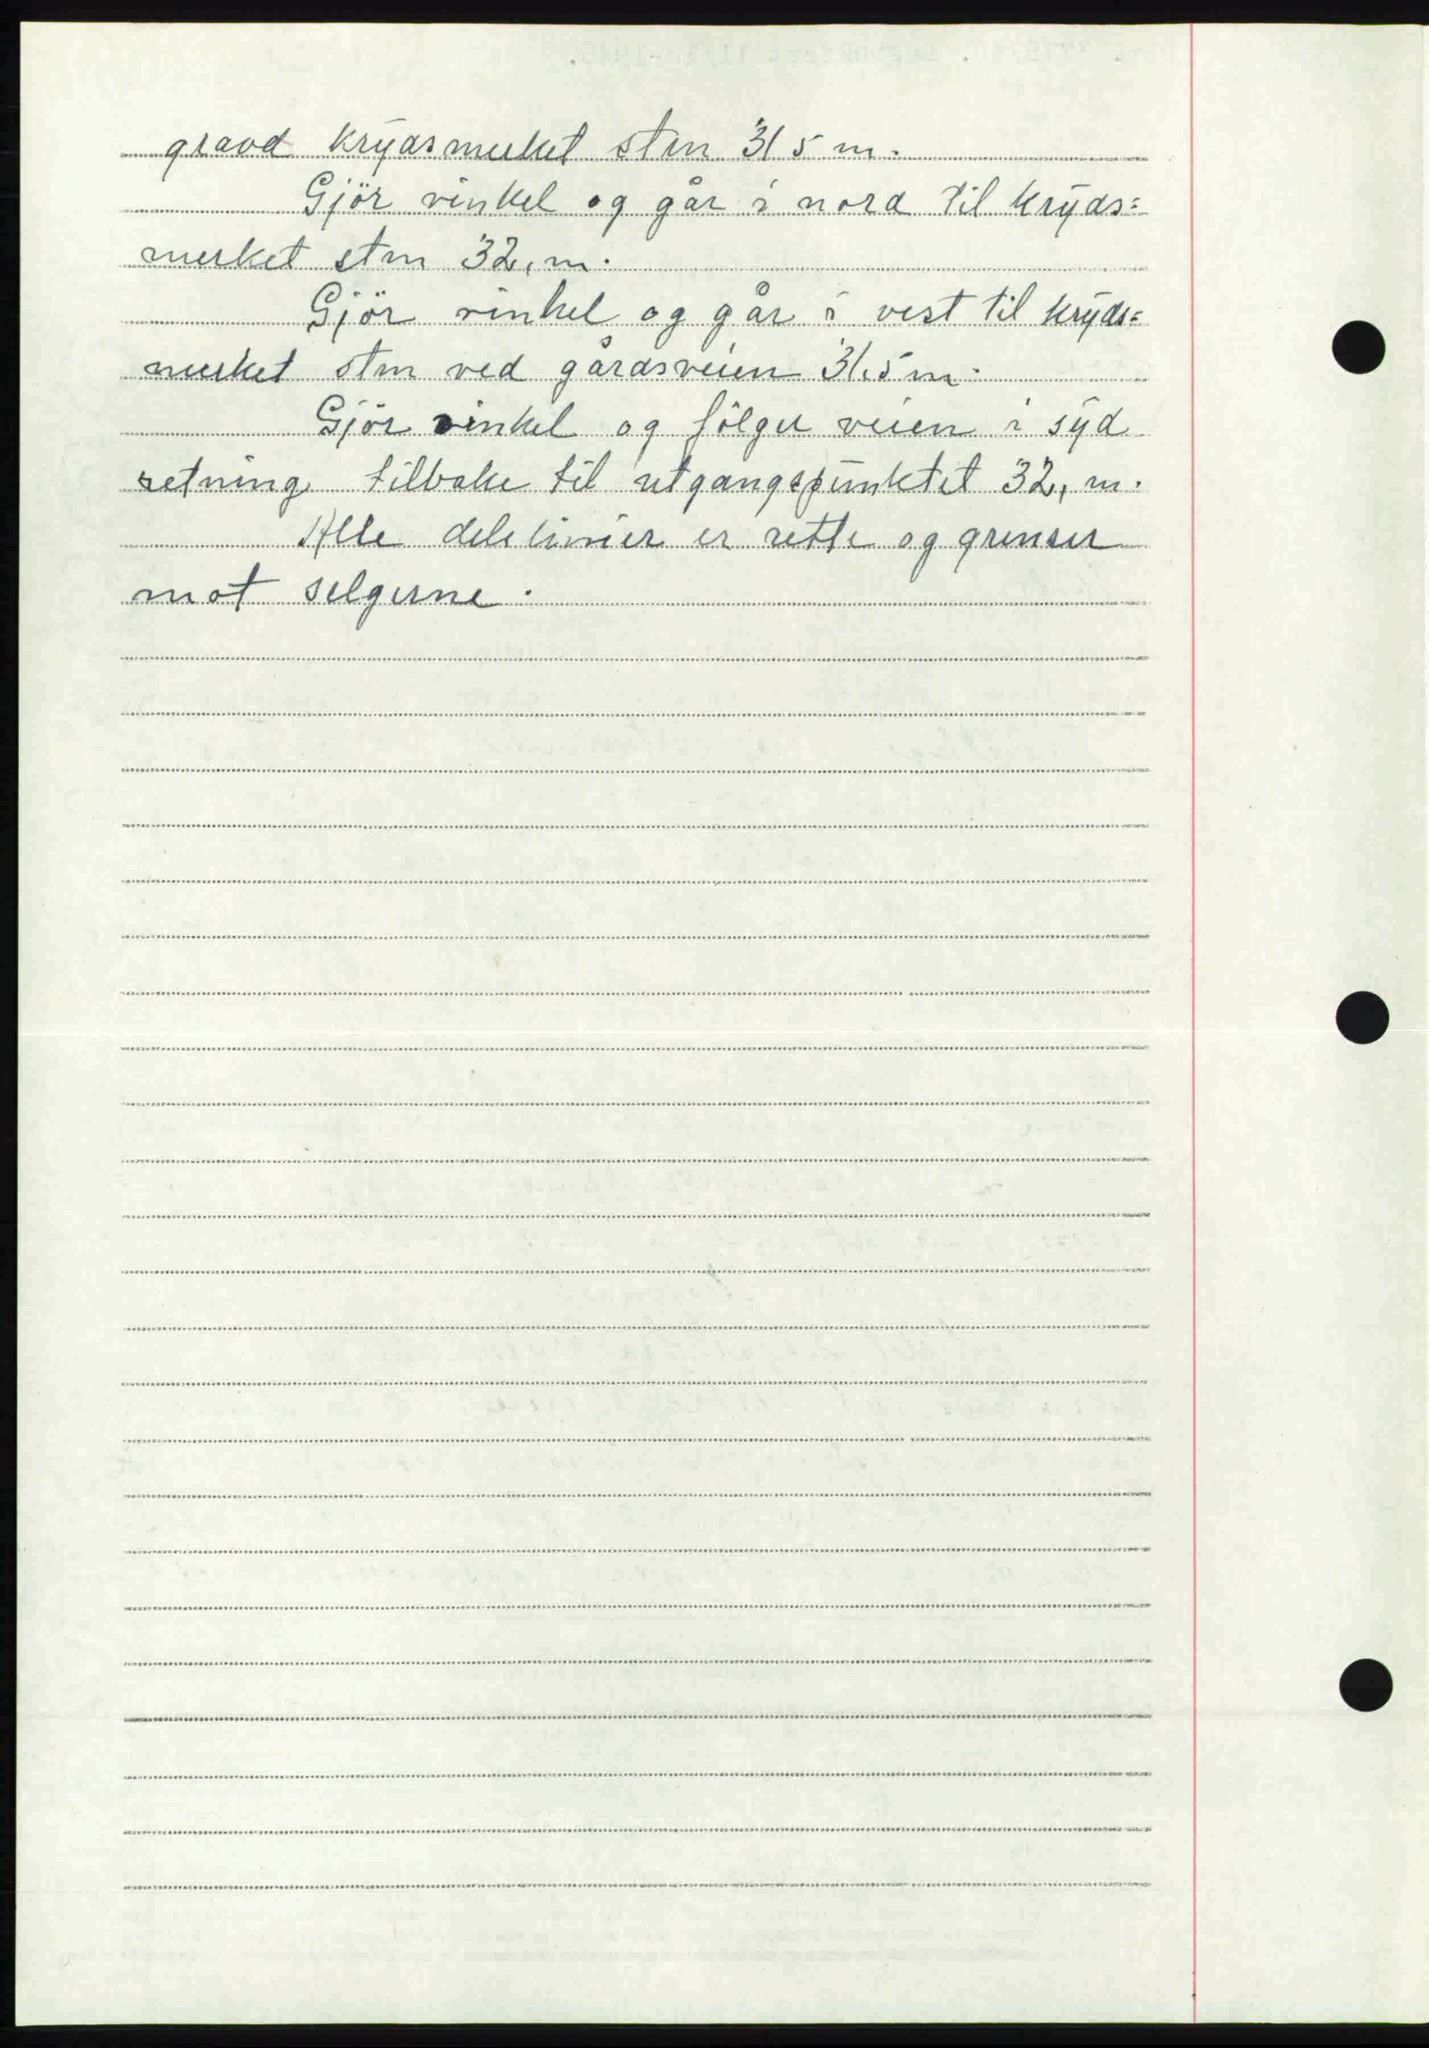 gravd krydsmerket sten 31,5 m.
Gjör vinkel og går i nord til kryds=
merket sten 32, m.
Gjör vinkel og går i vest til kryds=
merket sten ved gårdsveien 31,5 m.
Gjör vinkel og fölger veien i syd
retning tilbake til utgangspunktet 32, m.
Alle delelinier er rette og grenser
mot selgerne.